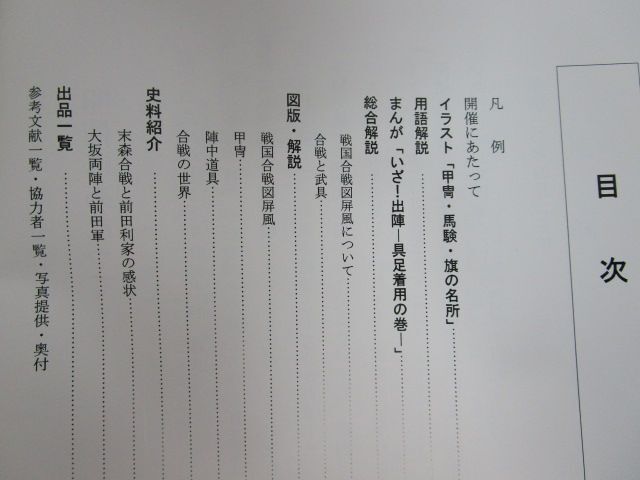 目次
凡例
開催にあたって
イラスト「甲冑・馬験・旗の名所」
用語解説
まんが「いざ！出陣―具足着用の巻―」
総合解説
戦国合戦図屏風について
合戦と武具
図版・解説
戦国合戦図屏風
甲冑
陣中道具
合戦の世界
史料紹介
末森合戦と前田利家の感状
大坂両陣と前田軍
出品一覧
参考文献一覧・協力者一覧・写真提供・奥付